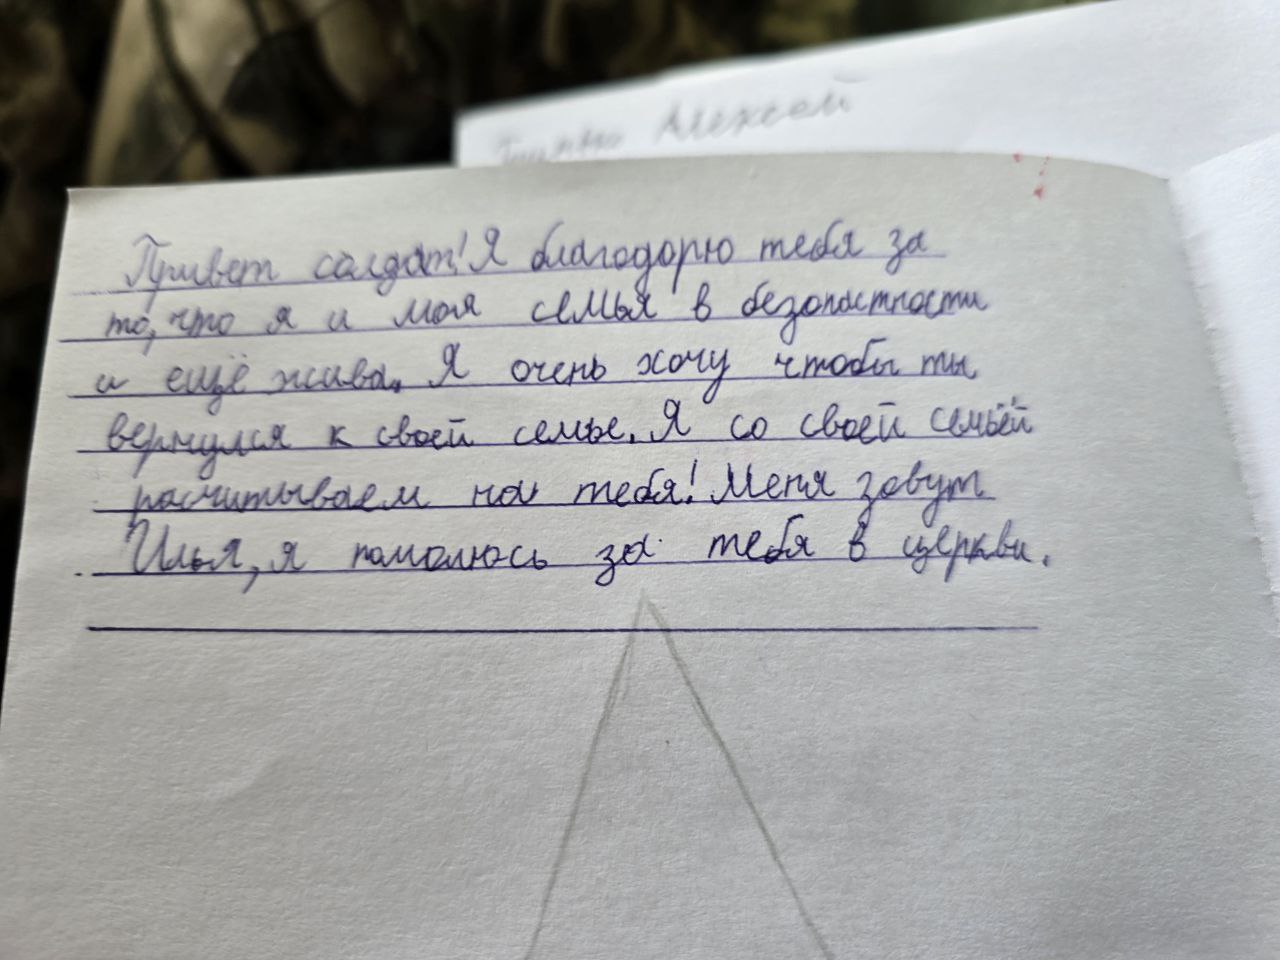 Алексей
Привет солдат! Я благодорю тебя за
то, что я и моя семья в безопастности
и ещё жива. Я очень хочу чтобы ты
вернулся к своей семье. Я со своей семьёй
расчитываем на тебя! Меня зовут
Илья, я помолюсь за тебя в церкви.